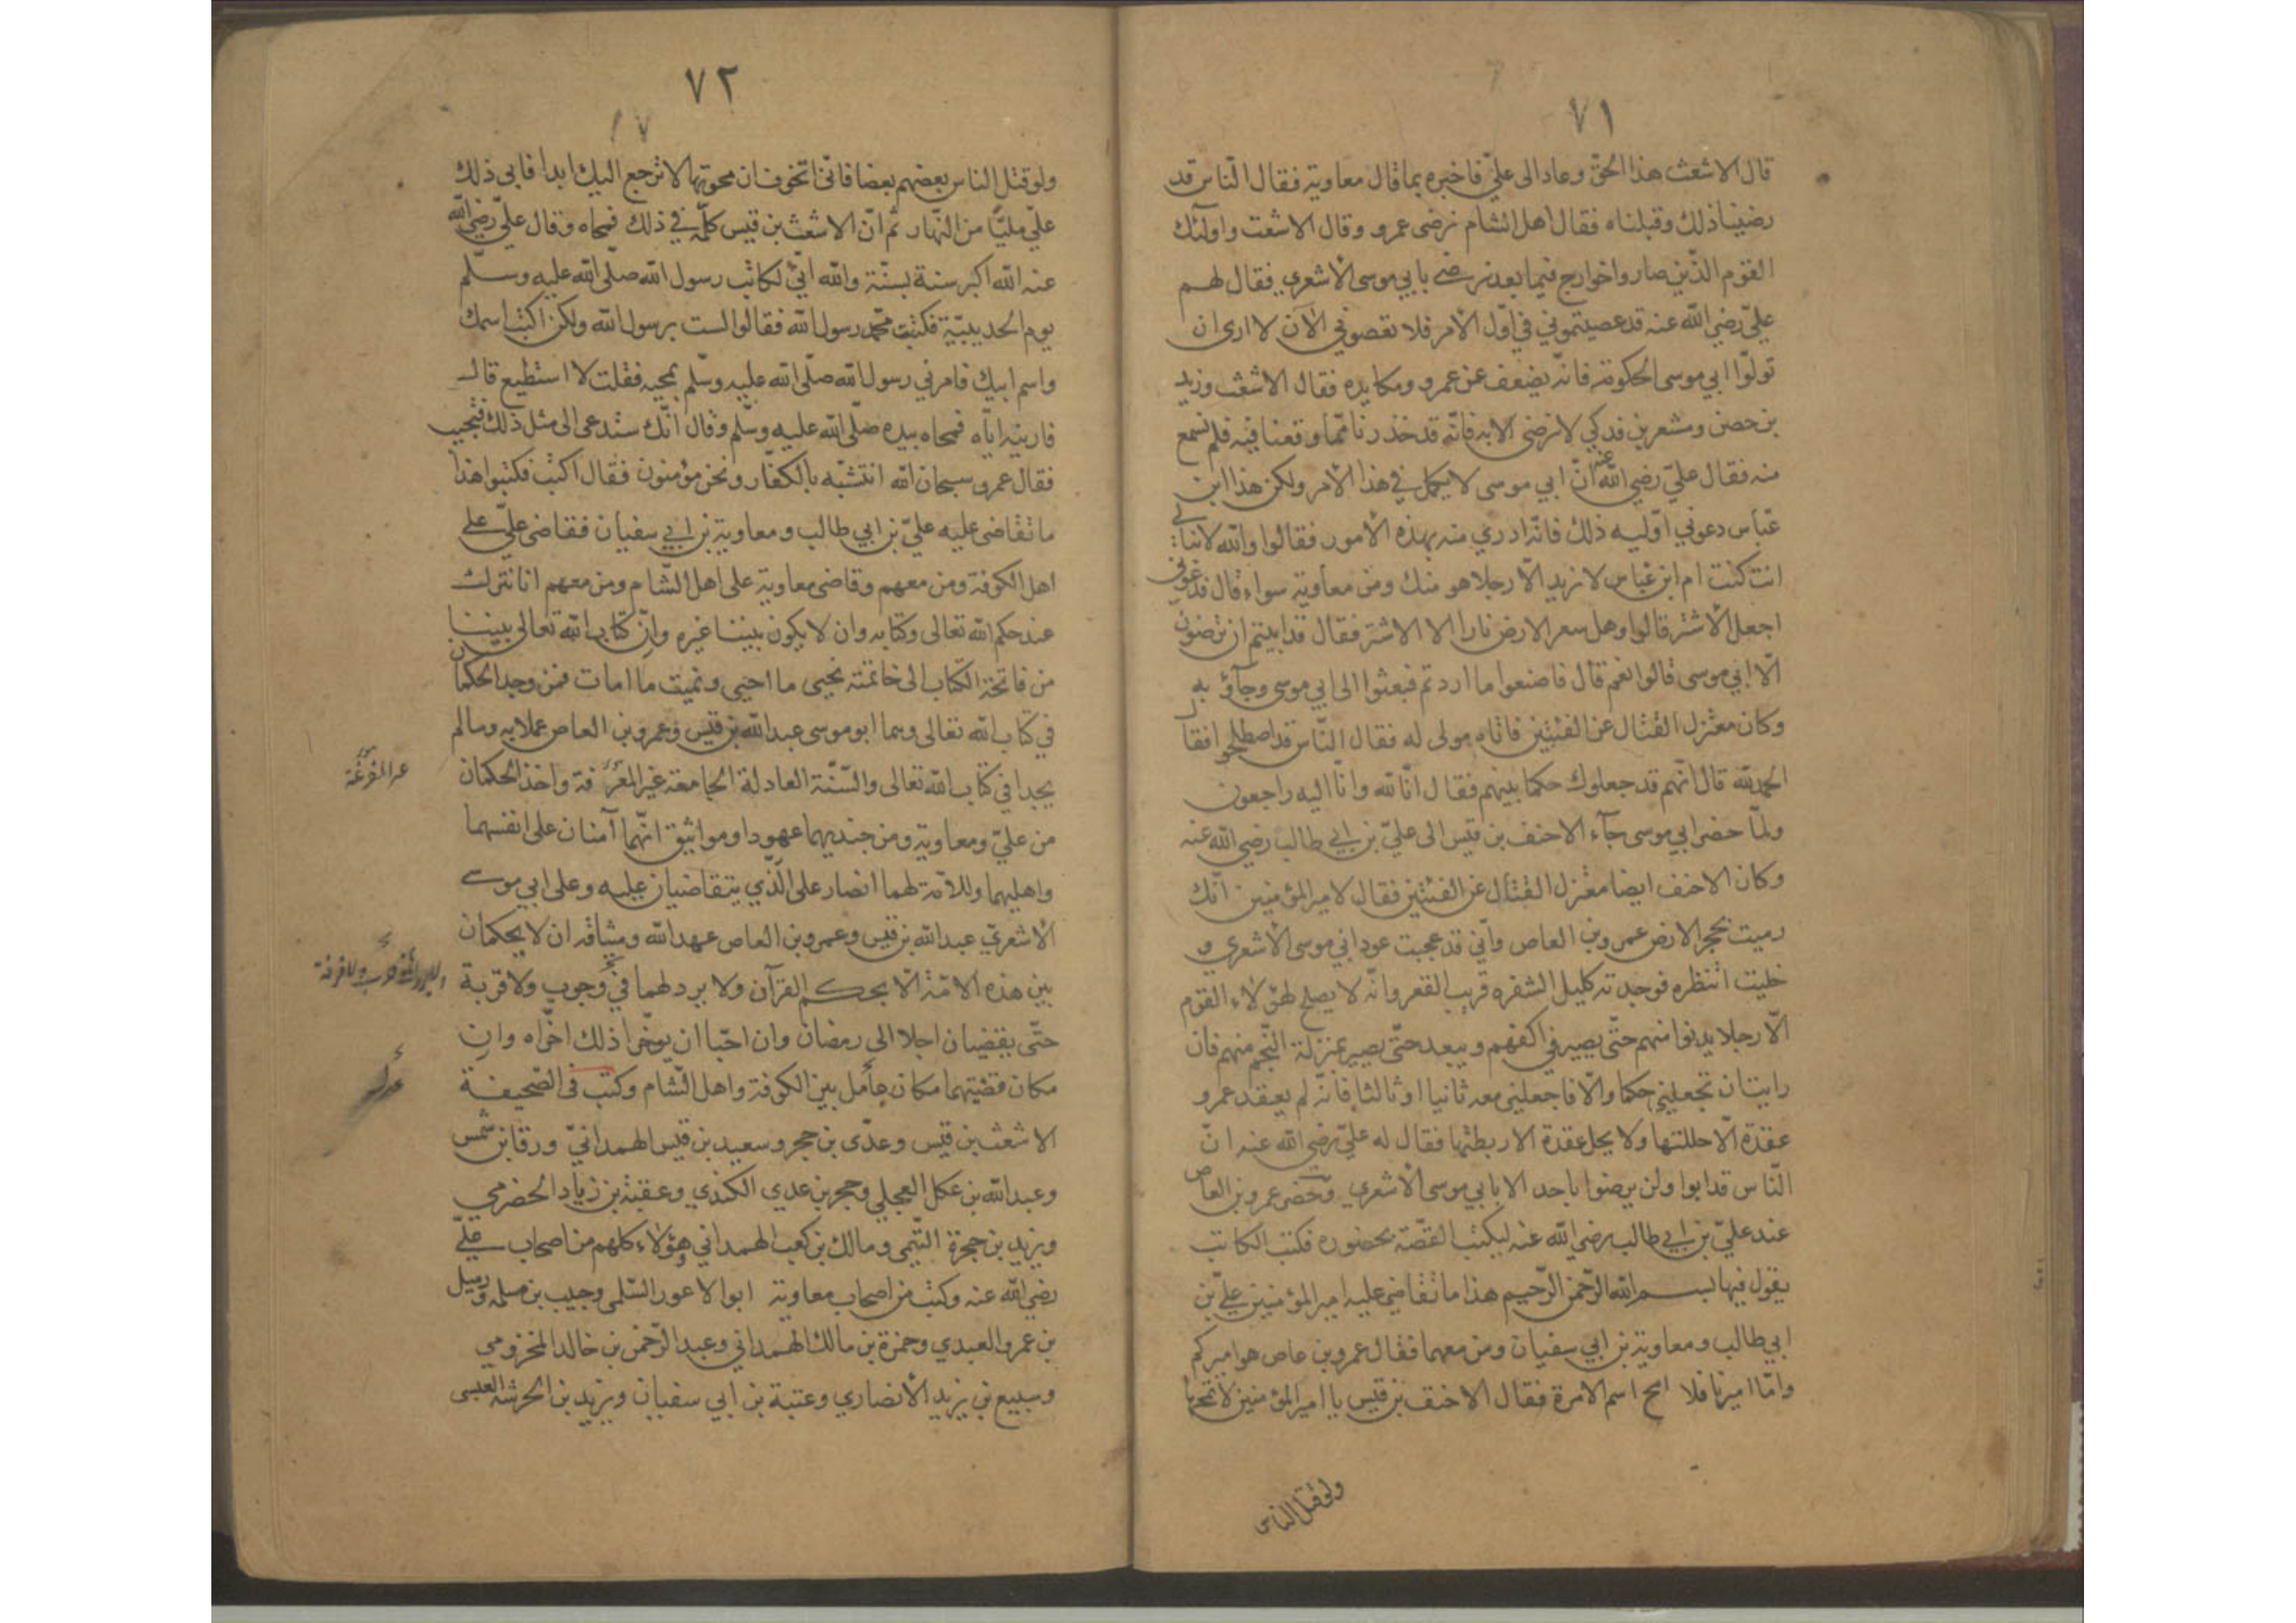 ٧١
قال الاشعث هذا الحق وعاد الى عليّ فاخبره بما قال معاوية فقال النّاس قد
رضينا ذلك وقبلناه فقال اهل الشام نرضى عمرو وقال الاشعث واولئك
القوم الذّين صاروا خوارج فيما بعد نرضى بابي موسى الاشعري فقال لهم
عليّ رضي الله عنه قد عصيتموني في اوّل الامر فلا تعصوني الآن لا ارى ان
تولّوا ابي موسى الحكومة فانّه يضعف عن عمرو ومكايده فقال الاشعث وزيد
بن حصن ومشعر بن فدكي لا نرضى الا به فانّه قد حذرنا ممّا وقعنا فيه فلم نسمع
منه فقال عليّ رضي الله عنه انّ ابي موسى لا يكمل في هذا الامر ولكن هذا ابن
عبّاس دعوني اوّليه ذلك فانّه ادري منه بهذه الأمور فقالوا والله لا نبالي
انت كنت ام ابن عبّاس لا نريد الّا رجلا هو منك ومن معاوية سواء قال فدعوني
اجعل الأشتر قالوا وهل سعر الارض نارا الا الاشتر فقال قد ابيتم ان ترضون
الّا ابي موسى قالوا نعم قال فاصنعوا ما اردتم فبعثوا الى ابي موسى وجاؤ به
وكان معتزل القتال عن الفئتين فاتاه مولى له فقال النّاس قد اصطلحوا فقال
الحمد لله قال انّهم قد جعلوك حكما بينهم فقال انّا لله وانّا اليه راجعون
ولمّا حضر ابي موسى جآء الاحنف بن قيس الى عليّ بن ابي طالب رضي الله عنه
وكان الاحنف ايضا معتزل القتال عن الفئتين فقال لامير المؤمنين انّك
رميت بحجر الارض عمرو بن العاص وانّي قد عجبت عود ابي موسى الأشعري و
خليت انتظره فوجدته كليل الشفره قريب القعر وانّه لا يصلح لهؤلاء القوم
الّا رجلا يدنوا منهم حتّى يصير في اكفهم ويبعد حتّى يصير بمنزلة النّجم منهم فان
رايت ان تجعليني حكما والّا فاجعليني معه ثانيا او ثالثا فانّه لم يعقد عمرو
عقدة الّا حللتها ولا يحل عقدة الا ربطتها فقال له عليّ رضي الله عنه انّ
النّاس قد ابوا ولن يرضوا باحد الا بابي موسى الأشعري وحضر عمرو بن العاص
عند عليّ بن ابي طالب رضي الله عنه ليكتب القصّة بحضوره فكتب الكاتب
يقول فيها بسم الله الرّحمن الرّحيم هذا ما تقاضى عليه امير المؤمنين عليّ بن
ابي طالب ومعاوية بن ابي سفيان ومن معهما فقال عمرو بن عاص هو اميركم
وامّا اميرنا فلا امح اسم الامرة فقال الاحنف بن قيس يا امير المؤمنين لا تمحها
ولو قتل الناس
٧٢
ولو قتل الناس بعضهم بعضا فانّي اتخوف ان محوتها لا ترجع اليك ابدا فابى ذلك
عليّ مليّا من النّهار ثم انّ الاشعث بن قيس كلّمه في ذلك فمحاه وقال عليّ رضي الله
عنه الله اكبر سنة بسنّة والله انّي لكاتب رسول الله صلّى الله عليه وسلّم
يوم الحديبيّة فكتبت محمّد رسول الله فقالوا لست برسول الله ولكن اكتب اسمك
واسم ابيك فامرني رسول الله صلّى الله عليه وسلّم بمحيه فقلت لا استطيع قال
فارينه ايّاه فمحاه بيده صلّى الله عليه وسلّم وقال انّك ستدعى الى مثل ذلك فتجيب
فقال عمرو سبحان الله انتشبّه بالكفّار ونحن مؤمنون فقال اكتب فكتبوا هذا
ما تقاضى عليه عليّ بن ابي طالب ومعاوية بن ابي سفيان فقاضى عليّ على
اهل الكوفة ومن معهم وقاضى معاوية على اهل الشّام ومن معهم انا نترك
عند حكم الله تعالى وكتابه وان لا يكون بيننا غيره وانّ كتاب الله تعالى بيننا
من فاتحة الكتاب الى خاتمته نحيى ما احيى ونميت ما امات فمن وجد الحكمان
في كتاب الله تعالى وهما ابو موسى عبد الله بن قيس وعمرو بن العاص عملا به وما لم
يجدا في كتاب الله تعالى والسّنّة العادلة الجامعة غير المفرّقة واخذ الحكمان
من عليّ ومعاوية ومن جنديهما عهودا ومواثيق انّهما آمنان على انفسهما
واهليهما وللأمّة لهما انصار على الّذي يتقاضيان عليه وعلى ابي موسى
الأشعريّ عبد الله بن قيس وعمرو بن العاص عهد الله وميثاقه ان لا يحكمان
بين هذه الامّة الّا بحكم القرآن ولا يردلهما في وجوب ولا قربة
حتّى يقضيان اجلا الى رمضان وان احبّا ان يوخّرا ذلك اخّراه وان
مكان قضيتهما مكان جأمل بين الكوفة واهل الشّام وكتب في الصّحيفة
الاشعث بن قيس وعدّى بن حجر وسعيد بن قيس الهمدانيّ وورقا بن شمس
وعبد الله بن عكل العجلي وحجر بن عدي الكندي وعقبة بن زياد الحضرمي
ويزيد بن حجرة التّيمي ومالك بن كعب الهمداني وهؤلاء كلهم من اصحاب عليّ
رضي الله عنه وكتب من اصحاب معاوية ابوا الاعور السّلمي وحبيب بن مسلمه ورميل
بن عمرو العبدي وحمزة بن مالك الهمداني وعبد الرّحمن بن خالد المخزومي
وسبيع بن يزيد الأنصاري وعتبة بن ابي سفيان ويزيد بن الحرشه العبسي